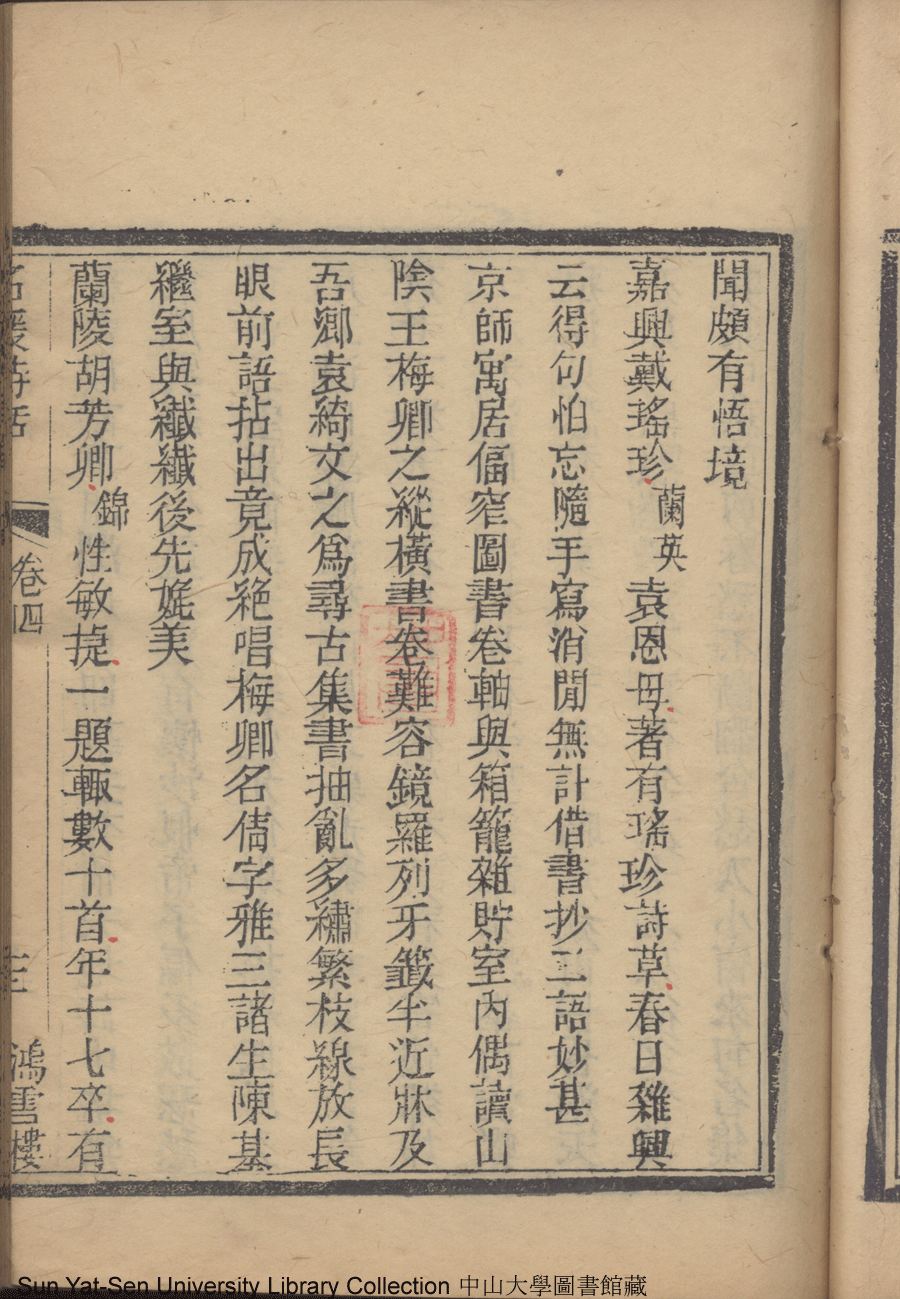 聞頗有悟境
嘉興戴瑤珍蘭英袁恩母著有瑤珍詩草春日雜興
云得句怕忘隨手寫消閒無計借書抄二語妙甚
京師寓居偪窄圖書卷軸與箱籠雜貯室內偶讀山
陰王梅卿之縱橫書卷難容鏡羅列牙籤半近牀及
吾鄉袁綺文之為尋古集書抽亂多繡繁枝線放長
眼前語拈出竟成絕唱梅卿名倩字雅三諸生陳基
繼室與纖纖後先媲美
蘭陵胡芳卿錦性敏捷一題輒數十首年十七卒有
名媛詩話
卷四
三
鴻雪樓
Sun Yat-Sen University Library Collection 中山大學圖書館藏